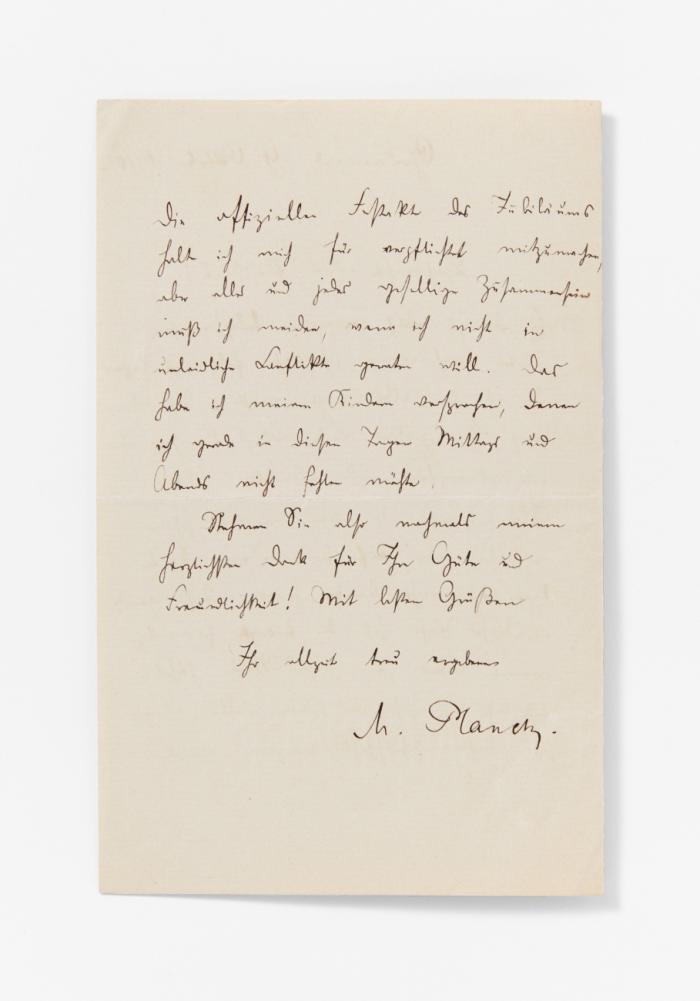 Die offiziellen Festakte des Jubiläums
halte ich mich für verpflichtet mitzumachen,
aber alles und jedes gesellige Zusammensein
muß ich meiden, wenn ich nicht in
unleidliche Conflikte geraten will. Das
habe ich meinen Kindern versprochen, denen
ich gerade in diesen Tagen Mittags und
Abends nicht fehlen möchte.
Nehmen Sie also nochmals meinen
herzlichsten Dank für Ihre Güte und
Freundlichkeit! Mit besten Grüßen
Ihr allzeit treu ergebener
M. Planck.